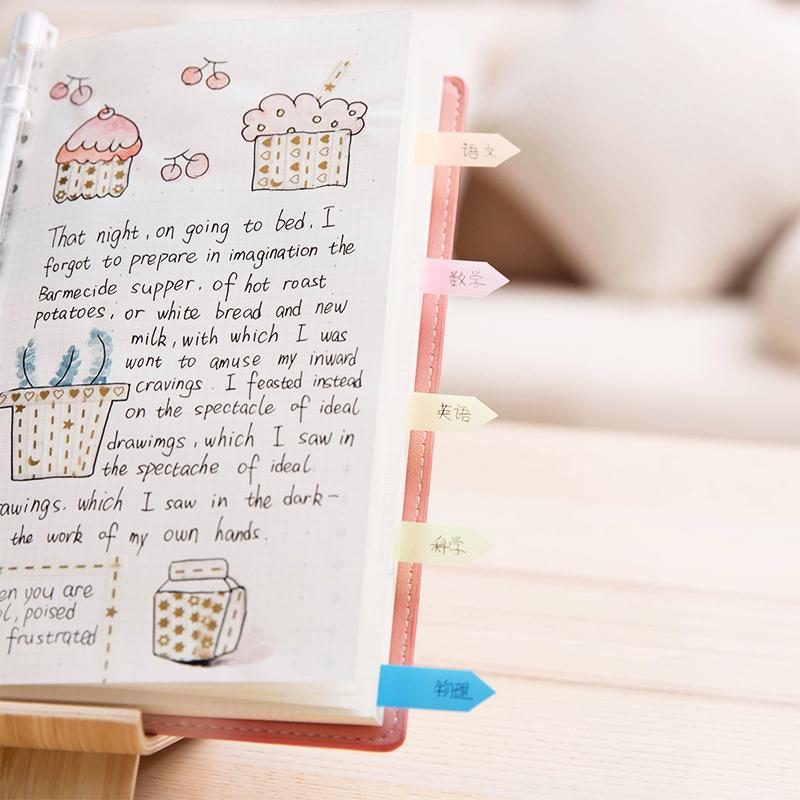 That night, on going to bed, I
forgot to prepare in imagination the
Barmecide supper, of hot roast
potatoes, or white bread and new
milk, with which I was
wont to amuse my inward
cravings. I feasted instead
on the spectacle of ideal
drawimgs, which I saw in
the spectache of ideal.
awings. which I saw in the dark-
the work of my own hands.
en you are
ol, poised
frustrated
语文
数学
英语
科学
物理